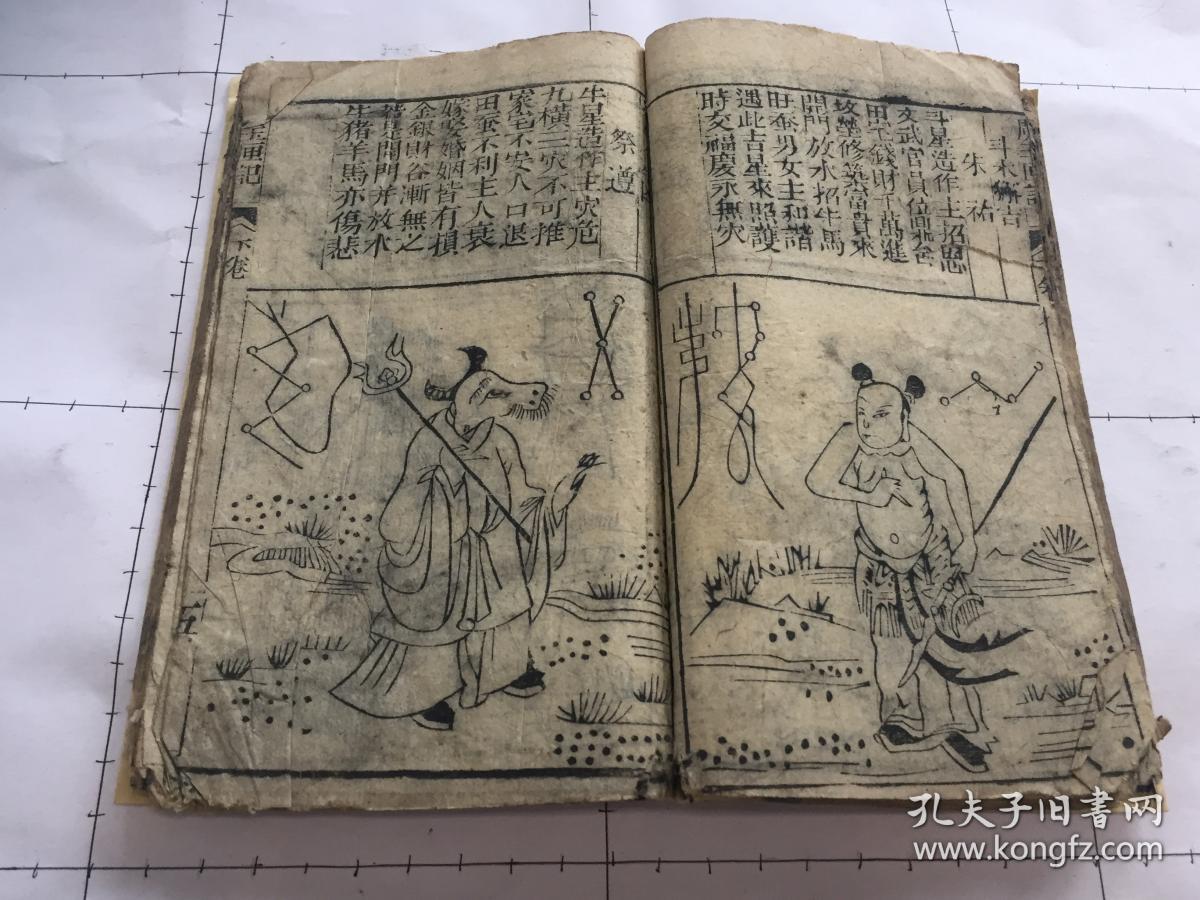 斗木獬吉
朱祐
斗星造作主招恩
文武官員位鼎台
田宅錢財千萬進
坟塋修築富貴來
開門放水招牛馬
旺蚕男女主和諧
遇此吉星來照護
時交福慶永無灾
祭遵
牛星造作主灾危
九橫三灾不可推
家宅不安人口退
田蚕不利主人衰
嫁娶婚姻皆有損
金銀財谷漸無之
若是開門并放水
牛猪羊馬亦傷悲
玉匣記
下卷
五
孔夫子旧书网
www.kongfz.com